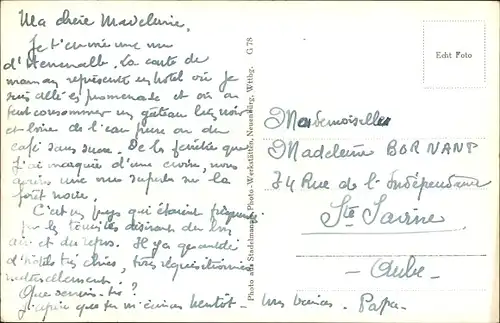 Ma chère Madeleine,
Je t'envoie une vue
d'Herrenalb. La carte de
maman représente un hôtel où je
suis allé en promenade et où on
peut consommer un gâteau
et boire de l'eau pure ou du
café sans sucre. De la fenêtre que
j'ai marquée d'une croix, nous
avions une vue superbe sur la
forêt noire.
C'est un pays qui était fréquenté
par les touristes désirant du bon
air et du repos. Il y a quantité
d'hôtels très chics, tous réquisitionnés
naturellement!
Que deviens-tu?
J'espère que tu m'écriras bientôt - Papa -
Photo aus Stadelmanns Photo-Werkstätten, Neuenbürg, Wttbg. G 78
Echt Foto
Mademoiselle
Madeleine BORNANT
74 Rue de l'Indépendance
Ste Savine
- Aube -